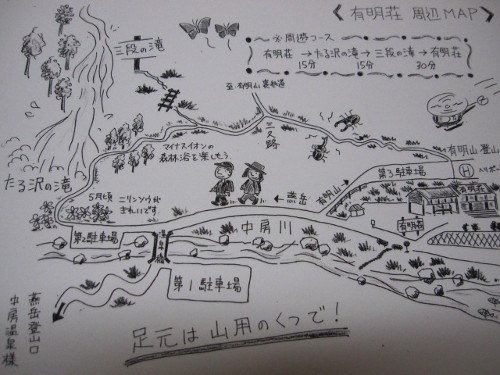 有明荘 周辺MAP
㊙周遊コース
有明荘→たる沢の滝→三段の滝→有明荘
15分 15分 30分
三段の滝
至 有明山 裏参道
三叉路
マイナスイオンの
森林浴を楽しもう
有明山 登山
第3駐車場
H
ヘリポート
たる沢の滝
5月頃
ニリンソウが
きれいです。
燕岳
有明山
有明荘
第2駐車場
温泉橋
中房川
第1駐車場
燕岳登山口
中房温泉様
足元は山用のくつで!